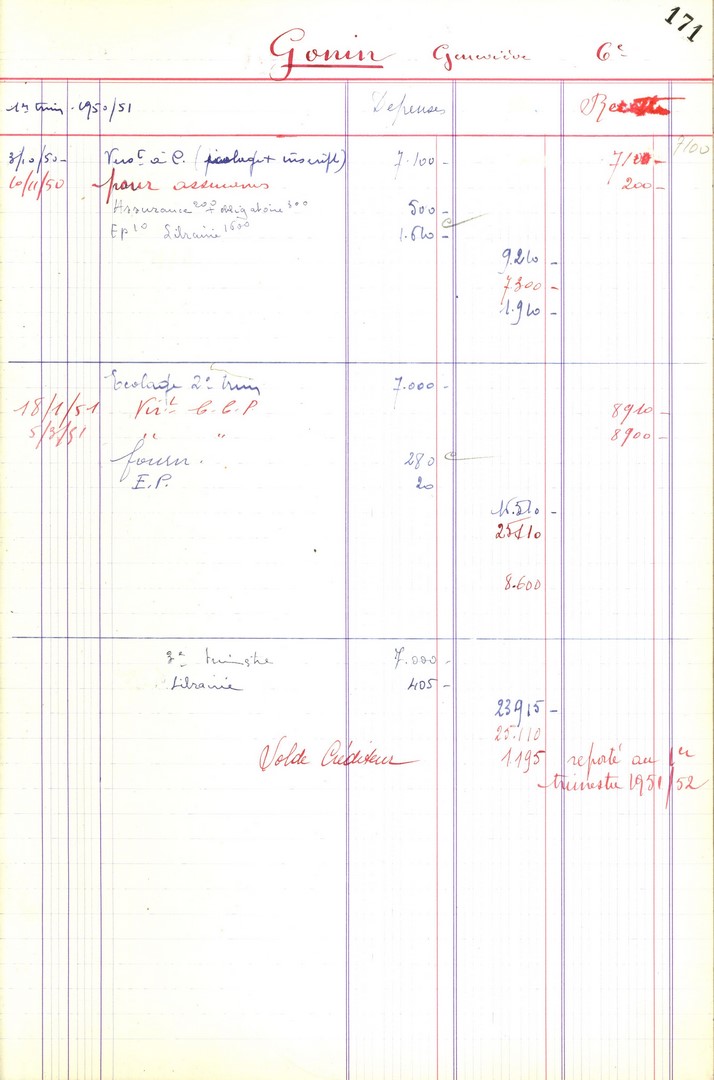 171
Gonin Geneviève 6e
1er trim. 1950/51 Dépenses Recettes
3/10/50 - Verst à C. (écolage + inscript) 7.100 - 7100 - 7100
10/11/50 pour assurances 200 -
Assurance 200 + obligatoire 300 500 -
Ep 10 Librairie 1600 1.610 -
9.210 -
7300 -
1.910 -
Ecolage 2e trim 7.000 -
18/1/51 Virt C.C.P 8910 -
5/3/51 " " 8900 -
fourn. 280
E.P. 20
16.510 -
25110
8.600
3e trimestre 7.000 -
Librairie 405 -
23915 -
25.110
Solde Créditeur 1.195 reporté au 1er
trimestre 1951/52